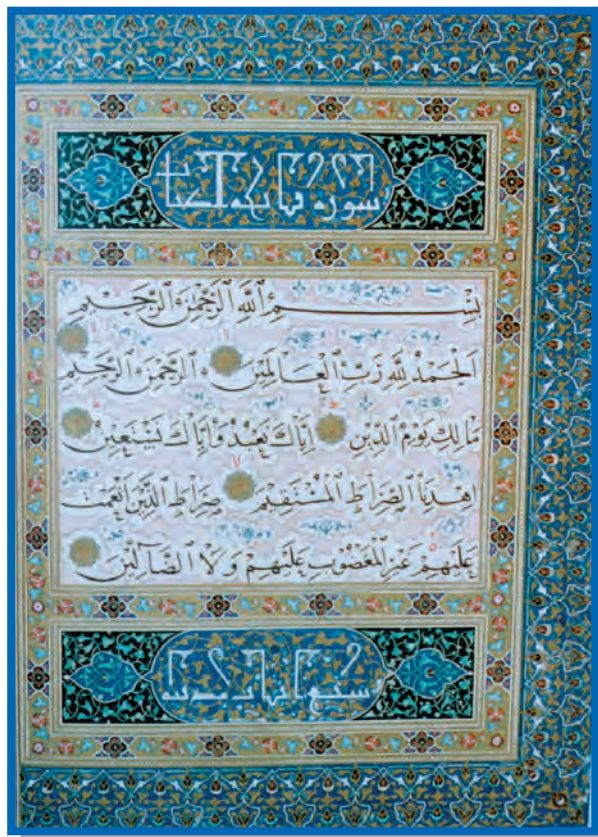 سورة فاتحة الكتاب
بِسْمِ اللهِ الرَّحْمٰنِ الرَّحِيمِ
اَلْحَمْدُ لِلّٰهِ رَبِّ الْعَالَمِينَ الرَّحْمٰنِ الرَّحِيمِ
مَالِكِ يَوْمِ الدِّينِ اِيَّاكَ نَعْبُدُ وَاِيَّاكَ نَسْتَعِينُ
اِهْدِنَا الصِّرَاطَ الْمُسْتَقِيمَ صِرَاطَ الَّذِينَ اَنْعَمْتَ
عَلَيْهِمْ غَيْرِ الْمَغْضُوبِ عَلَيْهِمْ وَلَا الضَّآلِّينَ